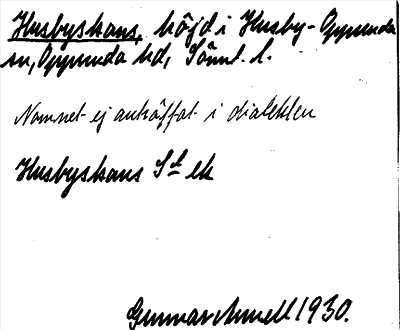 Husbyskans, höjd i Husby-Oppunda
sn, Oppunda hd, Söml. l.
Namnet ej anträffat i dialekten
Husbyskans Sd ek
Gunnar Annell 1930.